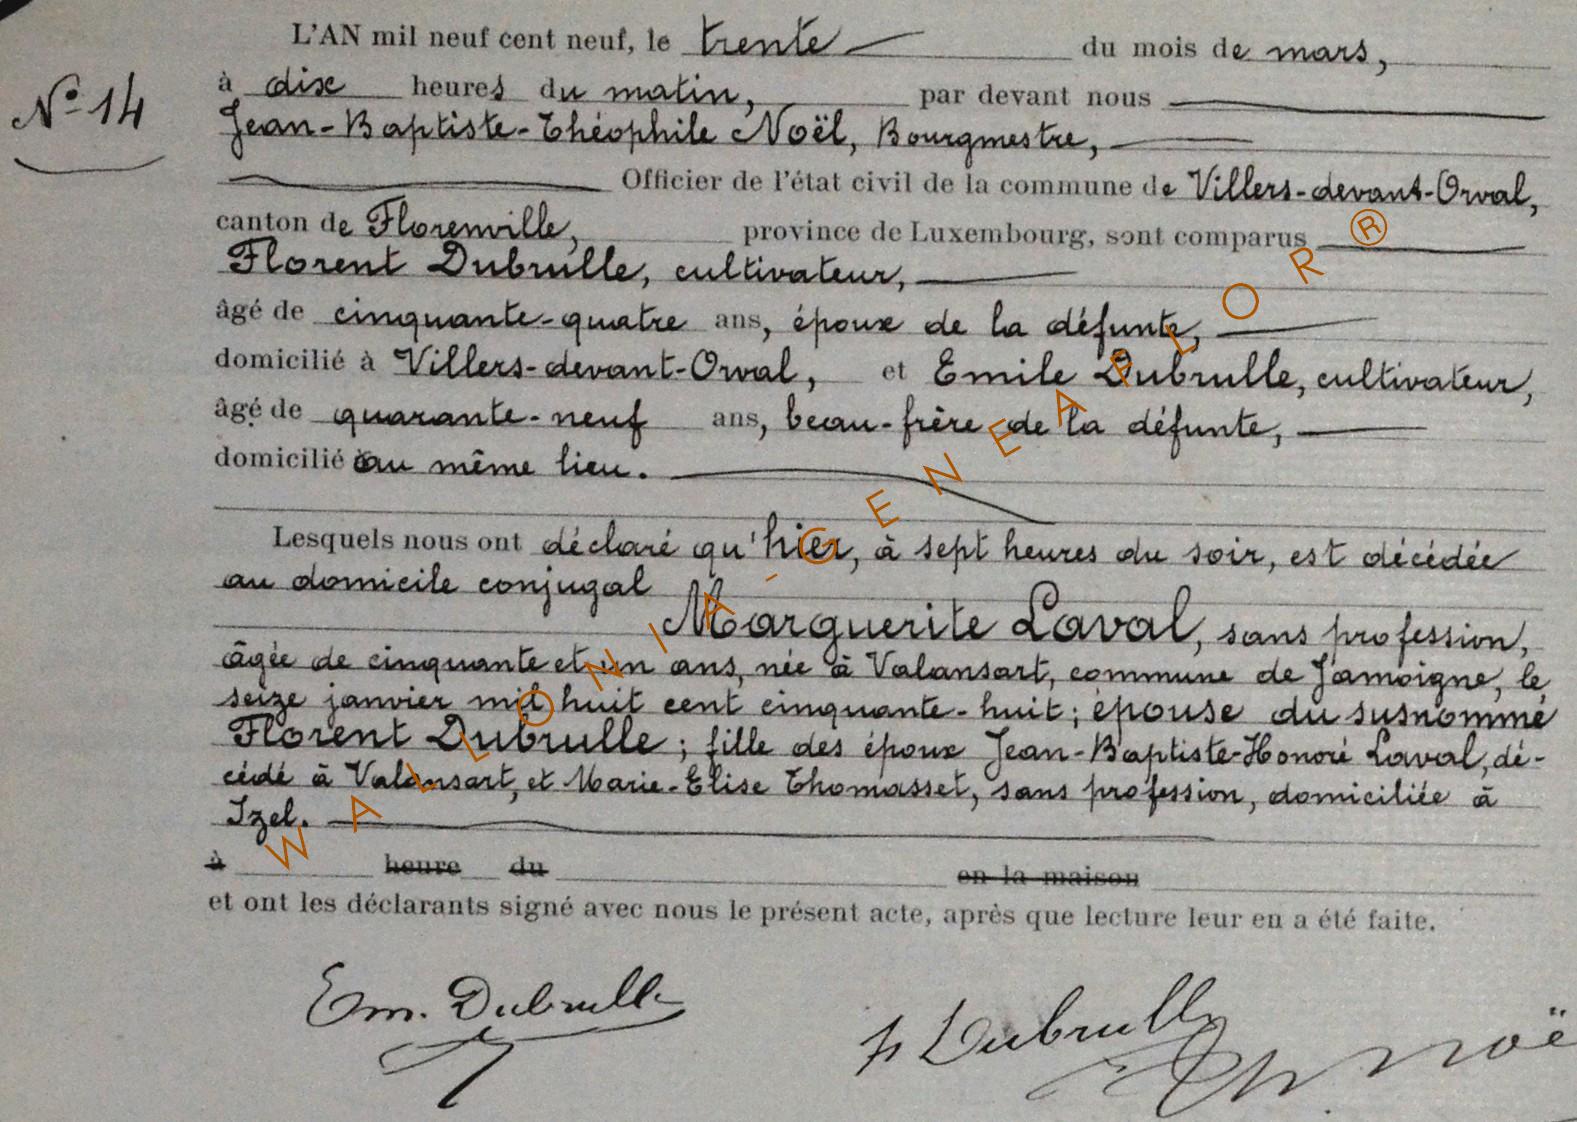 L'AN mil neuf cent neuf, le trente du mois de mars,
N° 14
à dix heures du matin, par devant nous
Jean-Baptiste-Théophile Noël, Bourgmestre,
Officier de l'état civil de la commune de Villers-devant-Orval,
canton de Florenville, province de Luxembourg, sont comparus
Florent Dubrulle, cultivateur,
âgé de cinquante-quatre ans, époux de la défunte,
domicilié à Villers-devant-Orval, et Emile Dubrulle, cultivateur,
âgé de quarante-neuf ans, beau-frère de la défunte,
domicilié au même lieu.
Lesquels nous ont déclaré qu'hier, à sept heures du soir, est décédée
au domicile conjugal
Marguerite Laval, sans profession,
âgée de cinquante et un ans, née à Valansart, commune de Jamoigne, le
seize janvier mil huit cent cinquante-huit; épouse du susnommé
Florent Dubrulle; fille des époux Jean-Baptiste-Honoré Laval, dé-
cédé à Valansart, et Marie-Elise Thomasset, sans profession, domiciliée à
Izel.
à heure du en la maison
et ont les déclarants signé avec nous le présent acte, après que lecture leur en a été faite.
Em. Dubrulle
f Dubrulle
Noë
WALLONIA-GENEAPLOR®